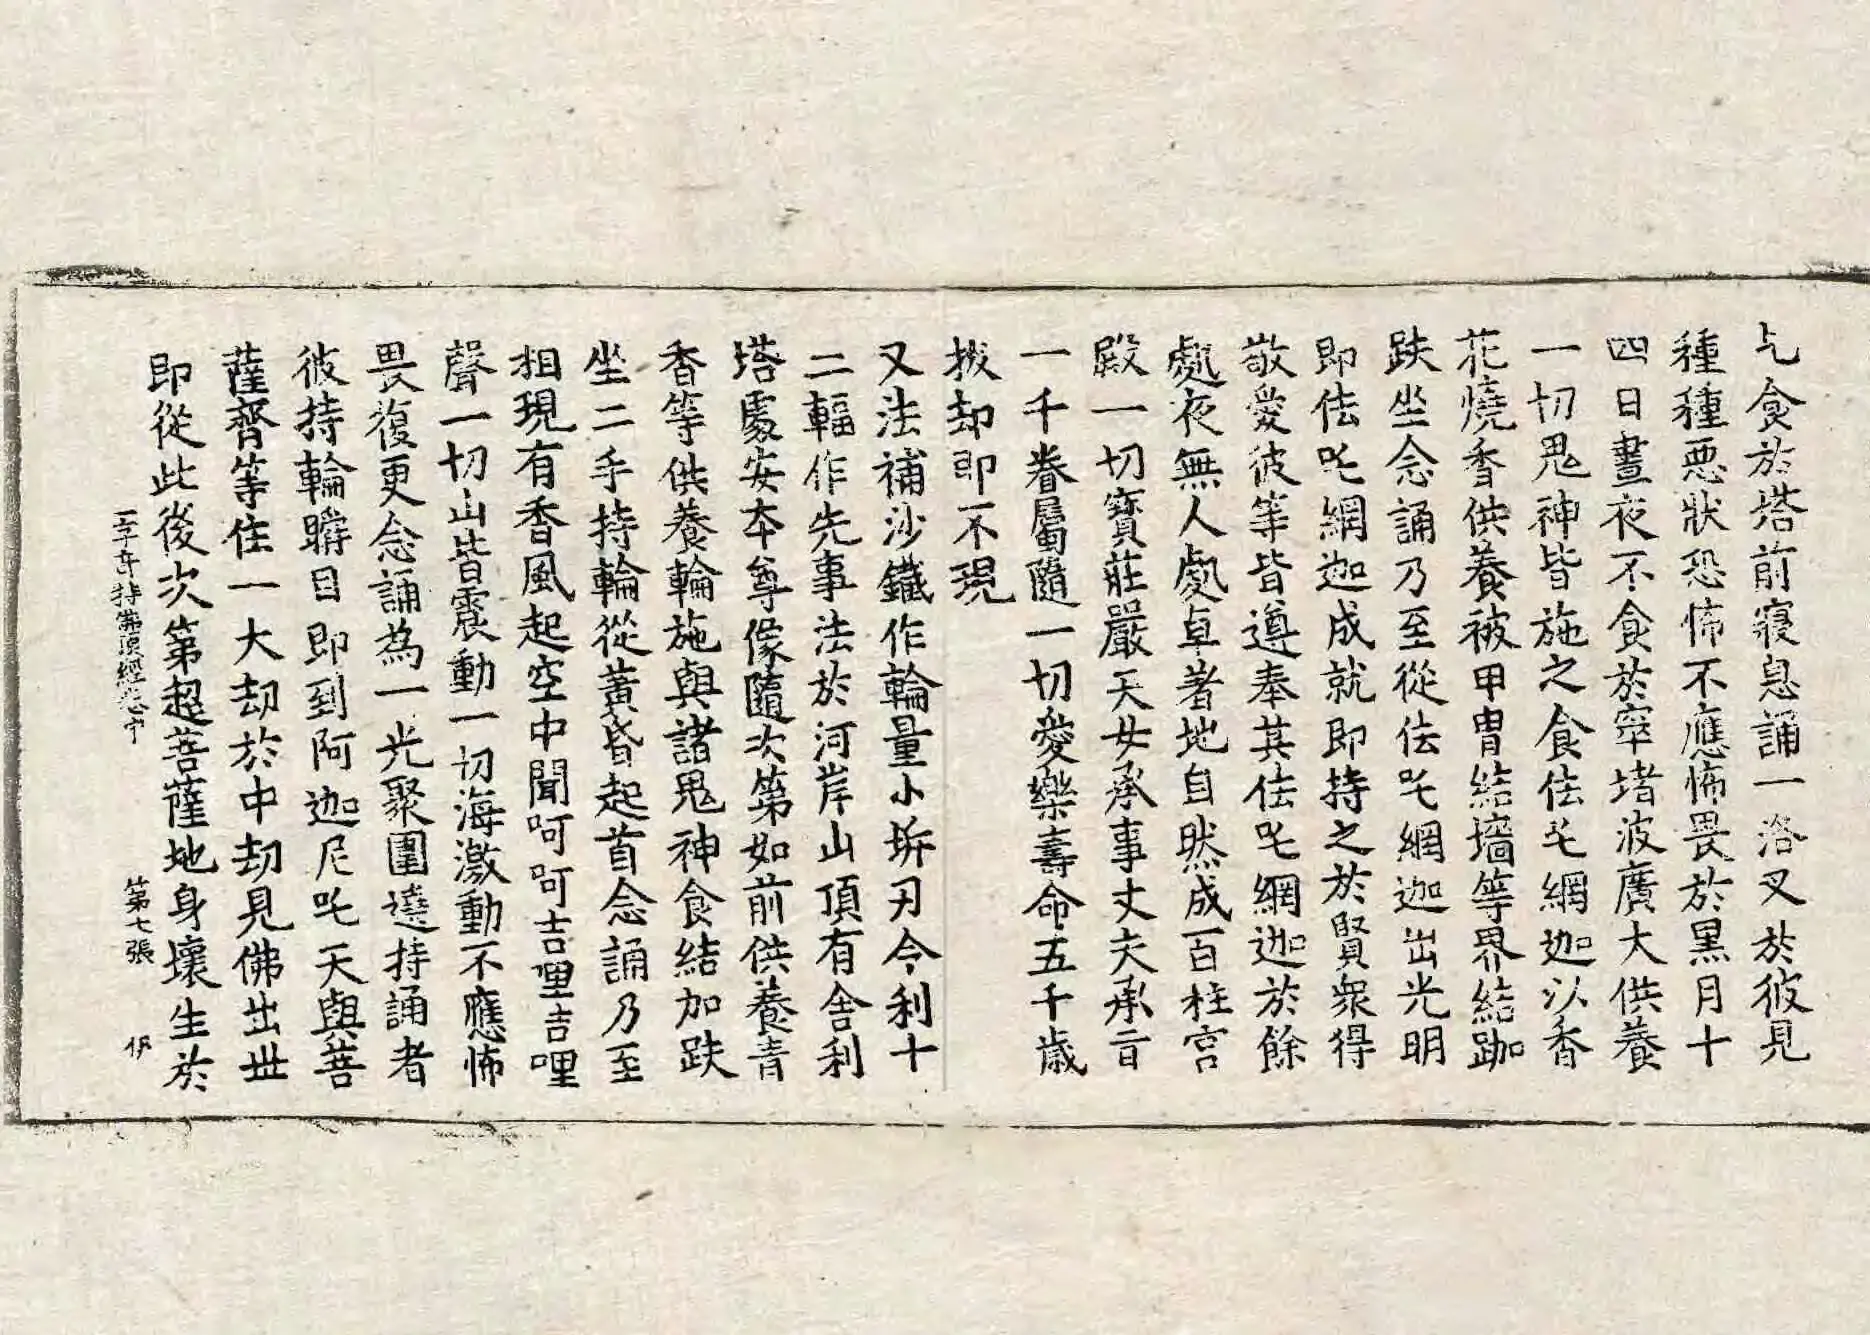 乞食於塔前寢息誦一洛叉於彼見
種種恶狀恐怖不應怖畏於黒月十
四日晝夜不食於窣堵波廣大供養
一切鬼神皆施之食佉吒網迦以香
花燒香供養被甲冑結墻等界結跏
趺坐念誦乃至從佉吒網迦出光明
即佉吒網迦成就即持之於賢衆得
敬愛彼等皆遵奉其佉吒網迦於餘
處夜無人處卓著地自然成百柱宫
殿一切寳莊嚴天女承事丈夫承旨
一千眷屬隨一切愛樂壽命五千歳
拔却即不現
又法補沙鐵作輪量小㭊刃令利十
二輻作先事法於河岸山頂有舍利
塔處安本尊像隨次第如前供養青
香等供養輪施與諸鬼神食結加趺
坐二手持輪從黃昏起首念誦乃至
相現有香風起空中聞呵呵吉哩吉哩
聲一切山皆震動一切海激動不應怖
畏復更念誦為一光聚圍遶持誦者
彼持輪瞬目即到阿迦尼吒天與菩
薩齊等住一大刧於中刧見佛出世
即從此後次第超菩薩地身壞生於
一字奇持佛頂經卷中 第七張 伊